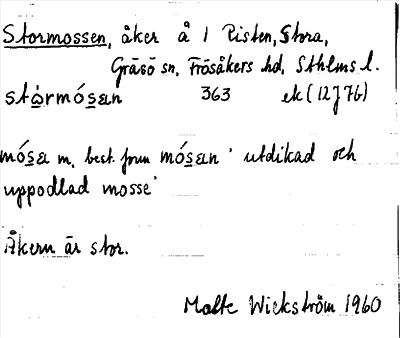 Stormossen, åker å 1 Risten, Stora,
Gräsö sn, Frösåkers hd, Sthlms l.
stȯrmós̲an 363 ek (12J7b)
mós̲a m, best. form mós̲an 'utdikad och
uppodlad mosse'
Åkern är stor.
Malte Wickström 1960